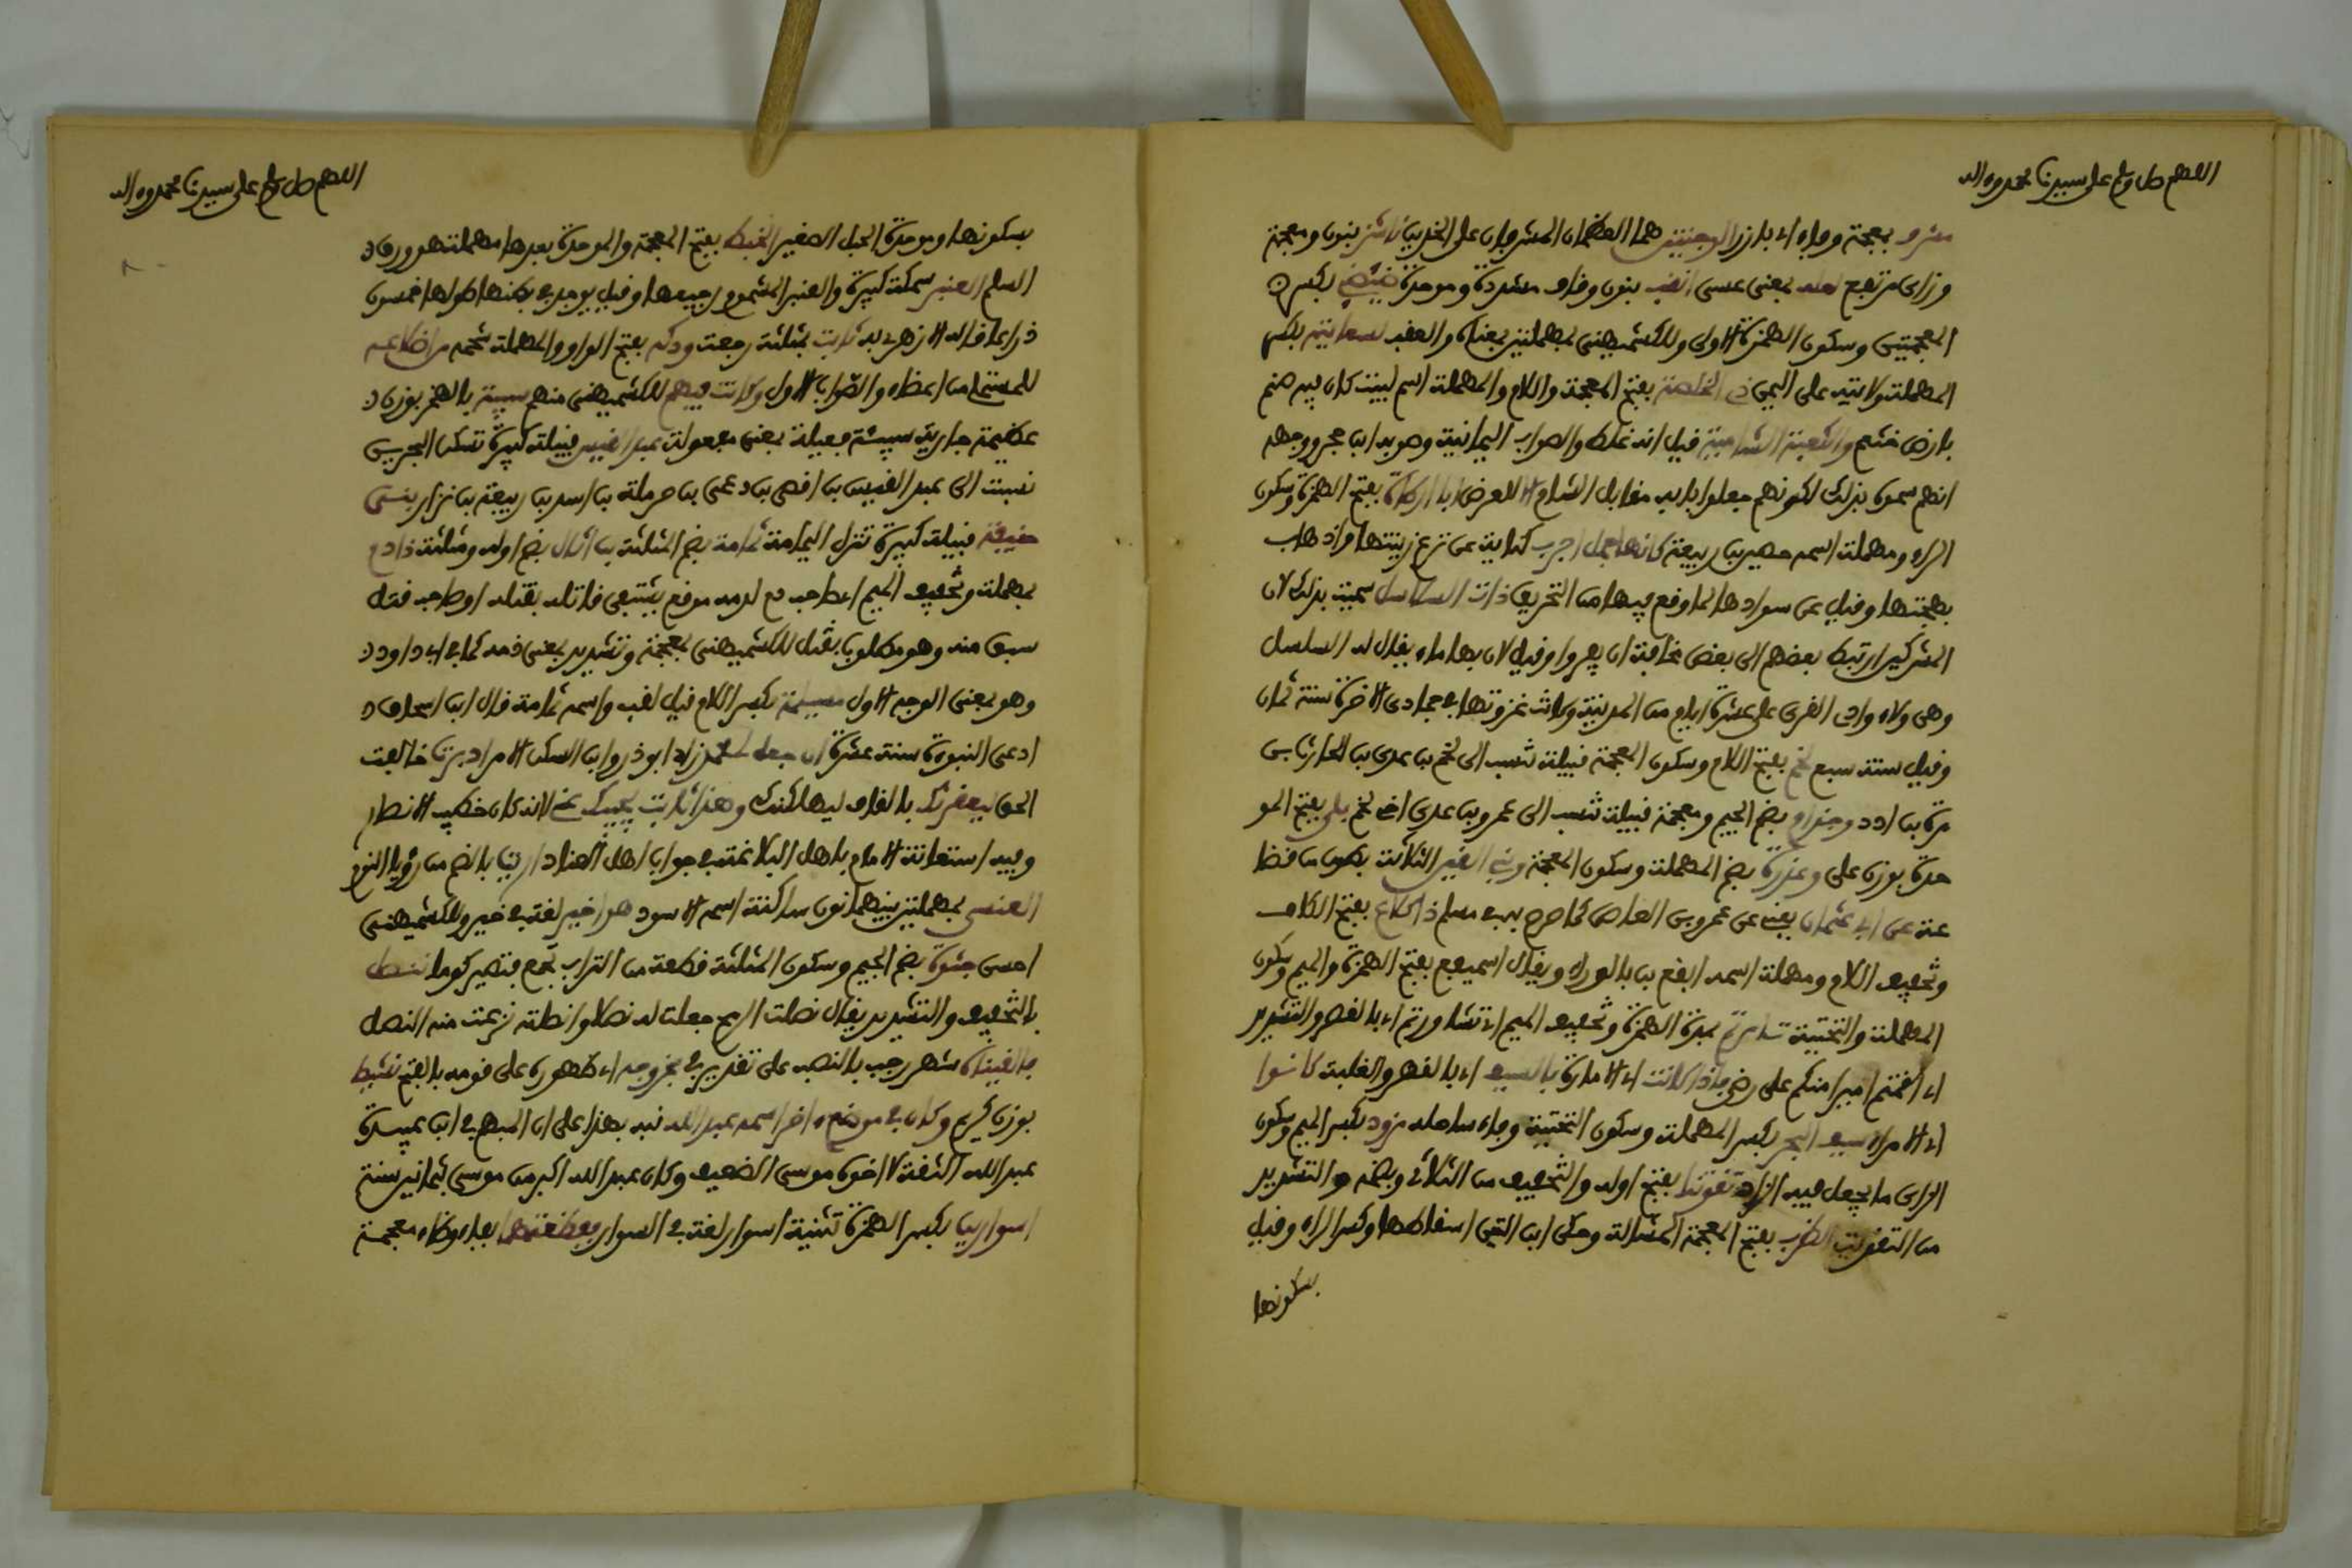 اللهم صل وسلم على سيدنا محمد وءاله
مشرف بمعجمة وفاء اي بارز الوجنتين هما العظمان المشرفان على الخدين ناشز بنون ومعجمة
وزاي مرتفع لعله بمعنى عسى انقب بنون وقاف مشددة وموحدة ضئضئ بكسر
المعجمتين وسكون الهمزة الاولى وللكشميهني بمهملتين بمعناه والعقب لسعايته بكسر
المهملة ولايته على اليمن ذي الخلصة بفتح المعجمة واللام والمهملة اسم لبيت كان فيه صنم
بارض خثعم والكعبة الشامية قيل انه غلط والصواب اليمانية وصوبه ابن حجر ووجهه
انهم سموه بذلك لكونهم جعلوا بابه مقابل الشام لا للعرض ابا ارطاة بفتح الهمزة وسكون
الراء ومهملة اسمه حصين بن ربيعة كانها جمل اجرب كناية عن نزع زينتها واذهاب
بهجتها وقيل عن سوادها لما وقع فيها من التحريق ذات السلاسل سميت بذلك لان
المشركين ارتبط بعضهم الى بعض مخافة ان يفروا وقيل لان بها ماء يقال له السلسل
وهي وراء وادي القرى على عشرة ايام من المدينة وكانت غزوتها في جمادى الاخرة سنة ثمان
وقيل سنة سبع لخم بفتح اللام وسكون المعجمة قبيلة تنسب الى لخم بن عدي بن الحارث بن
مرة بن ادد وجذام بضم الجيم ومعجمة قبيلة تنسب الى عمرو بن عدي اخي لخم بلي بفتح المو
حدة بوزن علي وعذرة بضم المهملة وسكون المعجمة وبني القين الثلاثة بطون من قضا
عة عن ابي عثمان يعني عن عمرو بن العاص كما صرح به في مسلم ذا كلاع بفتح الكاف
وتخفيف اللام ومهملة اسمه ايفع بن باكوراء ويقال اسميفع بفتح الهمزة والميم وسكون
المهملة والتحتية تئامرتم بمدة الهمزة وتخفيف الميم اي تشاورتم اي بالقصر والتشديد
اي اقمتم اميرا منكم على رضى فاذا كانت اي الامارة بالسيف اي بالقهر والغلبة كانوا
اي الامراء سيف البحر بكسر المهملة وسكون التحتية وفاء ساحله مزود بكسر الميم وسكون
الزاي ما يجعل فيه الزاد تقوتنا بفتح اوله والتخفيف من الثلاثي وبضمه والتشديد
من التقويت الظرب بفتح المعجمة المشالة وحكى ابن التين اسقاطها وكسر الراء وقيل
بسكونها
اللهم صل وسلم على سيدنا محمد وءاله
بسكونها وموحدة الجبل الصغير الخبط بفتح المعجمة والموحدة بعدها مهملة هو ورق
السلم العنبر سمكة كبيرة والعنبر المشموم رجيعها وقيل يوجد في بطنها طولها خمسون
ذراعا قاله الازهري ثابت بمثلثة رجعت ودكه بفتح الواو والمهملة شحمه من اضلاعه
للمستملي من اعضائه والصواب الاول وكانت فيهم للكشميهني منهم سبية بالهمز بوزن
عظيمة جارية سبيئة فعيلة بمعنى مفعولة عبد القيس قبيلة كبيرة تسكن البحرين
نسبة الى عبد القيس بن افصى بن دعمى بن جديلة بن اسد بن ربيعة بن نزار بني
حنيفة قبيلة كبيرة تنزل اليمامة ثمامة بضم المثلثة بن اثال بضم اوله ومثلثة ذا دم
بمهملة وتخفيف الميم اي صاحب دم لدمه موقع يشتفي قاتله بقتله او صاحب قتل
سبق منه وهو مطلوب بقتل للكشميهني بمعجمة وتشديد بمعنى ذمة كما في ابي داود
وهو بمعنى الوجه الاول مسيلمة بكسر اللام قيل لقب واسمه ثمامة قال ابن اسحاق
ادعى النبوة سنة عشرة ان جعل لي محمد زاد ابو ذر وابن السكن الامر ادبرت خالفت
الحق ليعقرنك بالقاف ليهلكنك وهذا ثابت يجيبك عني لانه كان خطيب الانصار
وفيه استعانة الامام باهل البلاغة في جواب اهل العناد اريت بالضم من رؤيا النوم
العنسي بمهملتين بينهما نون ساكنة اسمه الاسود هو اخير لغة في خير وللكشميهني
احسن جثوة بضم الجيم وسكون المثلثة قطعة من التراب تجمع فتصير كوما ننصل
بالتخفيف والتشديد يقال نصلت الرمح جعلت له نصلا وانصلته نزعت منه النصل
فالقيناه شهر رجب بالنصب على تقدير في بخروجه اي ظهوره على قومه بالفتح نشيط
بوزن كريم وكان في موضع ءاخر اسمه عبد الله نبه بهذا على ان المبهم في ابن عبيدة
عبد الله الثقة لا اخوه موسى الضعيف وكان عبد الله اكبر من موسى بثمانين سنة
اسوارين بكسر الهمزة تثنية اسوار لغة في السوار ففظعتهما بفاء وظاء معجمة